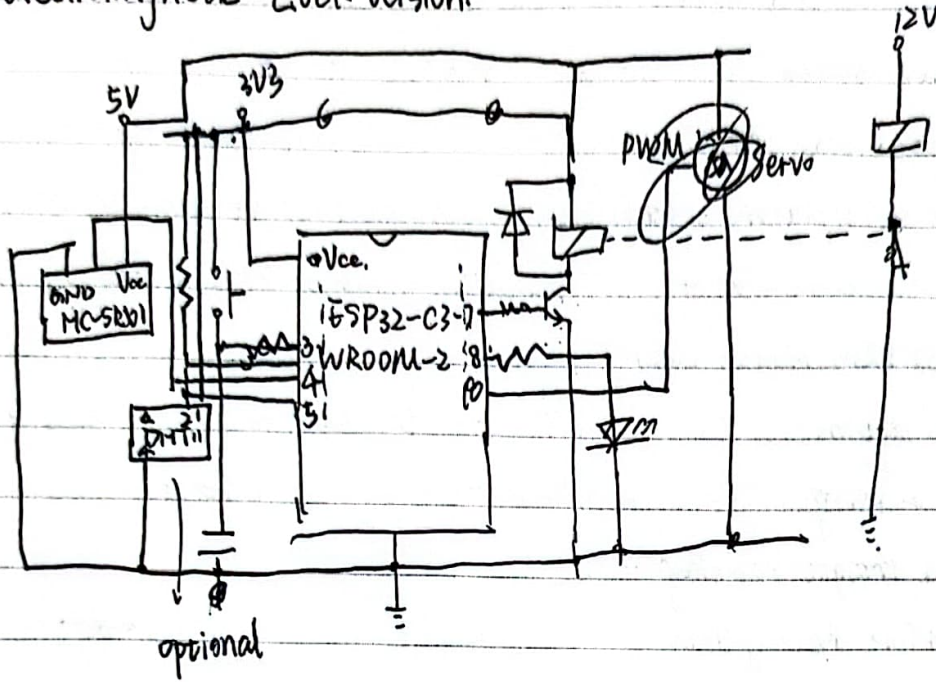 12V
5V
3V3
PWM
Servo
Vcc.
GND Vcc
ESP32-C3-
WROOM-2
3
4
5
8
10
DHT11
optional